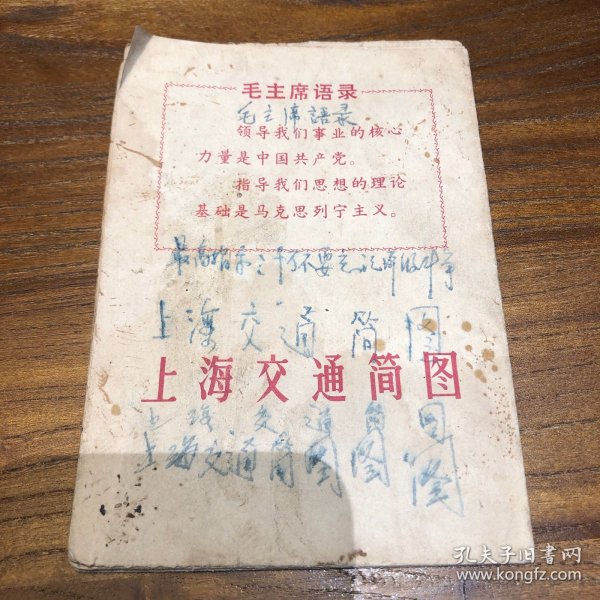 毛主席语录
毛主席語录
领导我们事业的核心
力量是中国共产党。
指导我们思想的理论
基础是马克思列宁主义。
最高指示:千万不要忘记阶级斗争
上海交通简图
上海交通简图
上海交通简图
上海交通简图图图
孔夫子旧书网
www.kongfz.com